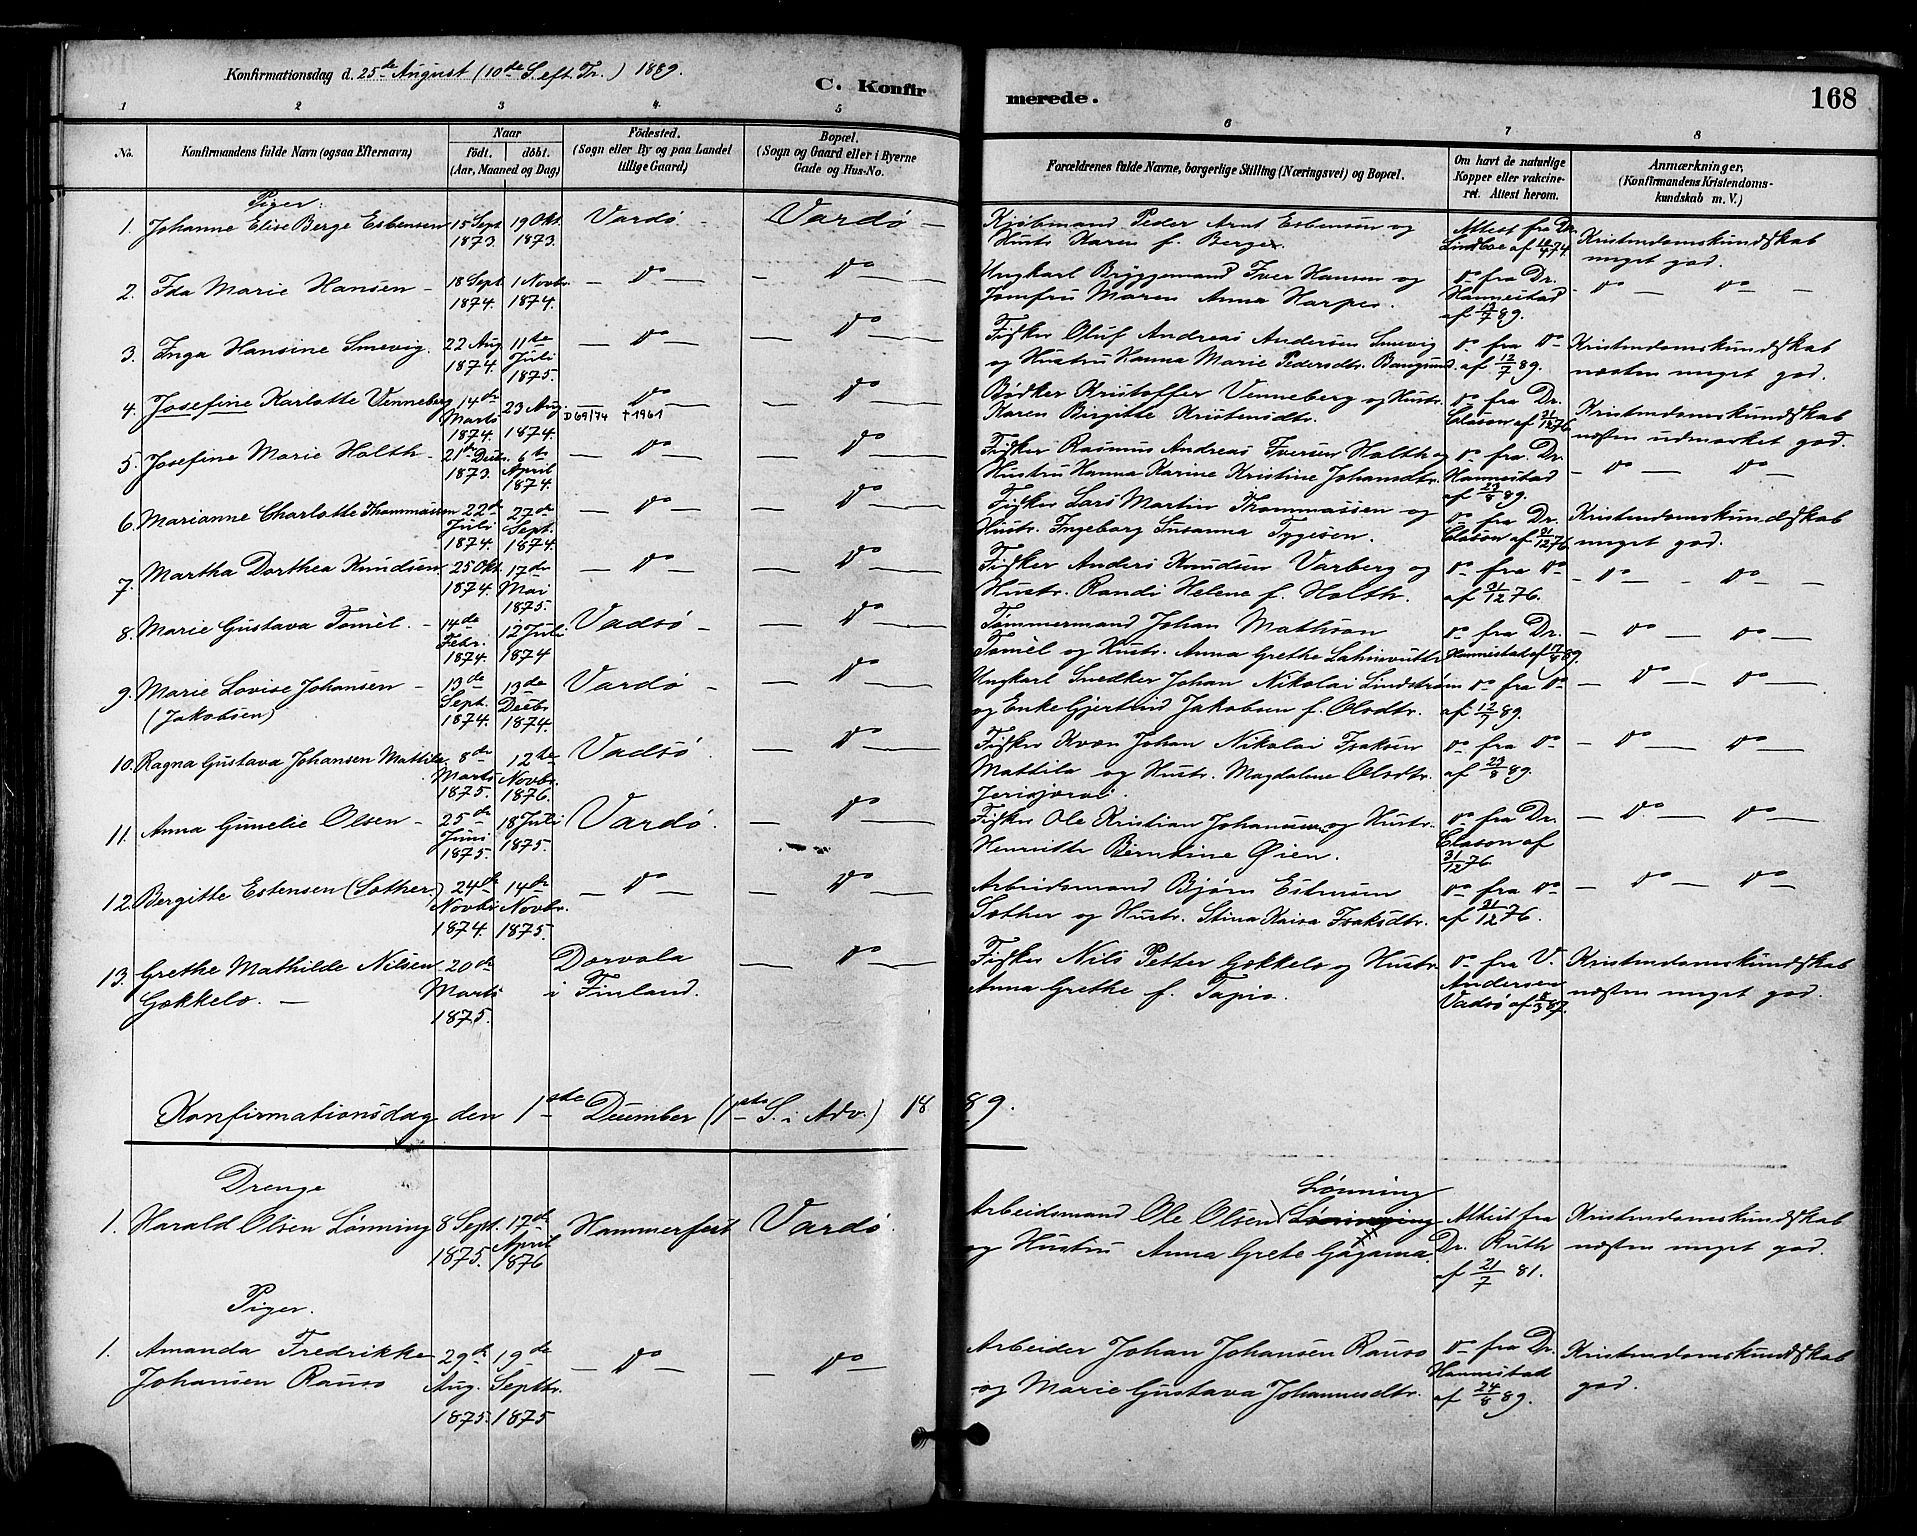 Konfirmationsdag d. 25de August (10de S. eft. Tr.) 1889.
C. Konfirmerede.
168
1 2 3 4. 5 6 7 8
No.
Konfirmandens fulde Navn (ogsaa Efternavn)
Naar
födt. döbt.
(Aar, Maaned og Dag)
Födested.
(Sogn eller By og paa Landet
tillige Gaard)
Bopæl.
(Sogn og Gaard eller i Byerne
Gade og Hus-No.
Forældrenes fulde Navne, borgerlige Stilling (Næringsvei) og Bopæl.
Om havt de naturlige
Kopper eller vakcine-
ret. Attest herom.
Anmærkninger,
(Konfirmandens Kristendoms-
kundskab m. V.)
Piger.
1. Johanne Elise Berge Esbensen 15 Sept 1873. 19 Okt. 1873. Vardø – Vardø –
Kjøbmand Peder Arnt Esbensen og
Hustr. Karen f. Berger.
Attest fra Dr.
Lindboe af
Kristendomskundskab
meget god.
2. Ida Marie Hansen – 18 Sept 1874. 1 Novbr. 1874. – Do – – Do –
Ungkarl Bryggemand Iver Hansen og
Jomfru Maren Anna Harper.
Do fra Dr.
Hannestad
– Do – Do –
3. Inga Hansine Smevig. 22 Aug 1874. 11te Juli 1875. – Do – – Do –
Fisker Oluf Andreas Andersen Smevig
og Hustru Hanna Marie Pedersdtr. Bangsund.
Do fra Do
af 12/7 89.
Kristendomskundskab
næsten meget god.
4. Josefine Karlotte Venneberg 14de Marts 1874. 23 Aug. 1874. – Do – – Do –
D 69/74 †1961
Bødker Kristoffer Venneberg og Hustr.
Karen Birgitte Kristensdtr.
Do fra Dr.
Clason af 31/12 76.
Kristendomskundskab
næsten udmærket god.
5. Josefine Marie Holth – 21de Decbr. 1873. 6te April 1874. – Do – – Do –
Fisker Rasmus Andreas Iversen Holth og
Hustru Hanna Karine Kristine Johansdtr.
Do fra Dr.
Hannestad
af 23/8 89.
– Do – Do –
6. Marianne Charlotte Thommassen 22de Juli 1874. 27de Sept. 1874. – Do – – Do –
Fisker Lars Martin Thommassen og
Hustr. Ingeborg Susanna Tygesen.
Do fra Dr.
Clason af 31/12 76.
Kristendomskundskab
meget god.
7. Martha Dorthea Knudsen 25 Okt. 1874. 17de Mai 1875. – Do – – Do –
Fisker Anders Knudsen Varberg og
Hustr. Randi Helene f. Holth.
Do fra Do
af 31/12 76.
– Do – Do –
8. Marie Gustava Tomèl. – 14de Febr. 1874. 12 Juli 1874 Vadsø – – Do –
Tømmermand Johan Mathson
Tomèl og Hustr. Anna Grethe
Do fra Dr.
Hannestad af
– Do – Do –
9. Marie Lovise Johansen – 13de Sept. 1874. 13de Decbr 1874. Vardø – – Do –
(Jakobsen)
Ungkarl Snedker Johan Nikolai Lindstrøm
og Enke Gjertrud Jakobsen f. Olsdtr.
Do fra Do
af 12/7 89.
– Do – Do –
10. Ragna Gustava Johansen Mattila 8de Marts 1875. 12te Novbr. 1876. Vadsø. – Do –
Fisker Kvæn Johan Nikolai Isaksen
Mattila og Hustr. Magdalene Olsdtr.
Jerisjærvi.
Do fra Do
af 23/8 89.
– Do – Do –
11. Anna Gunelie Olsen – 25de Juni 1875. 18 Juli 1875. Vardø. – Do –
Fisker Ole Kristian Johannesen og Hustr.
Henriette Berndine Øien.
Do fra Dr.
Clason af
31/12 76.
– Do – Do –
12. Bergitte Estensen (Sæther) 24de Novbr 1874. 14de Novbr. 1875. – Do – – Do –
Arbeidsmand Bjørn Estensen
Sæther og Hustr. Stina Kaisa Isaksdtr.
Do fra Do
af 31/12 76.
– Do – Do –
13. Grethe Mathilde Nilsen 20de Marts 1875. Dorvola – Do –
Gokkelo. – i Finland.
Fisker Nils Petter Gokkelo og Hustr.
Anna Grethe f. Tapio.
Do fra V.
Andersen
Vadsø af
Kristendomskundskab
næsten meget god.
Konfirmationsdag den 1ste December (1ste S. i Adv.) 1889.
Drenge
1. Harald Olsen Lønning 8 Sept. 1875. 17de April 1876 Hammerfest Vardø.
Lønning
Arbeidsmand Ole Olsen
og Hustru Anna Grete Gagama.
Attest fra
Dr. Ruth
af 21/7 81.
Kristendomskundskab
næsten meget god.
Piger.
1. Amanda Fredrikke 29de Aug. 1875. 19de Septbr. 1875 – Do – Do –
Johansen Rauso
Arbeider Johan Johansen Rauso
og Marie Gustava Johannesdtr.
Do fra Dr.
Hannestad
af 24/8 89.
Kristendomskundskab
god.